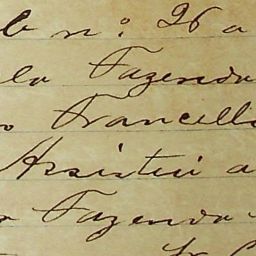 b nº: 26 a
la Fazenda
o Francelli
Assistiu a
Fazenda